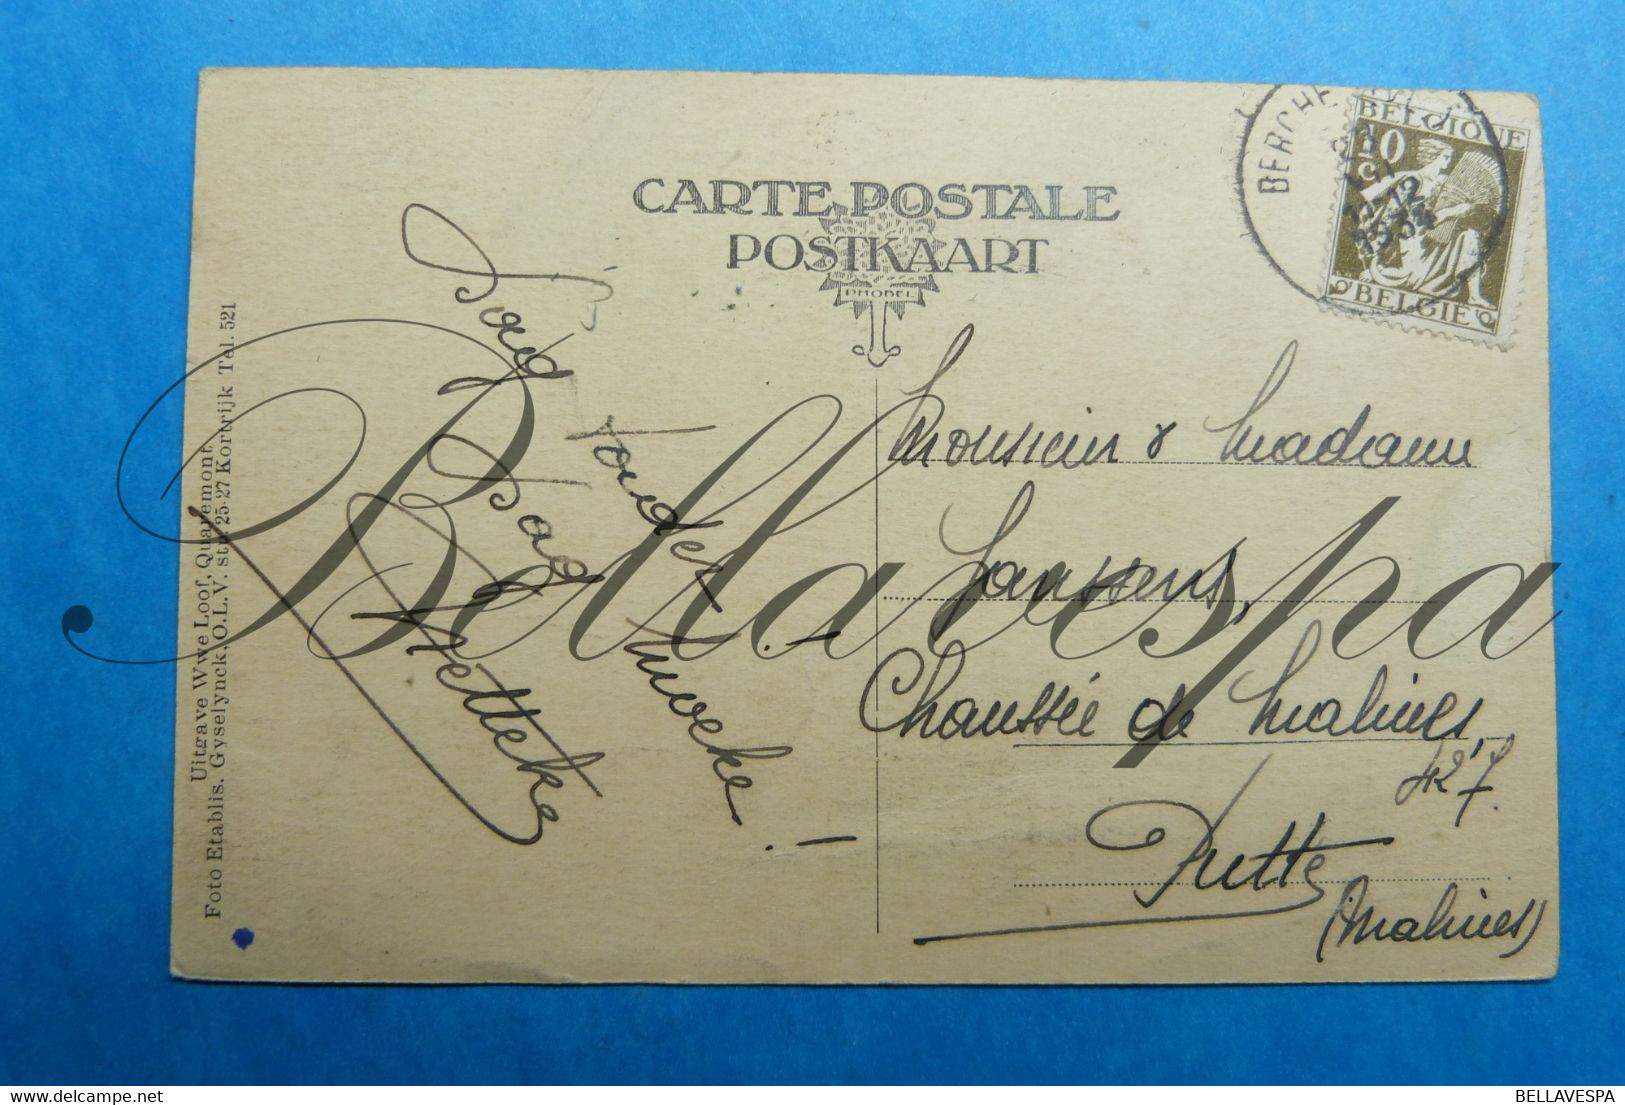 CARTE POSTALE
POSTKAART
PHOBEL
BERCHE
BELGIQUE
10
c
BELGIE
11-12
1934
Uitgave Wwe Loof, Quaremont
Foto Etablis. Gyselynck, O.L.V. str. 25-27 Kortrijk Tel. 521
Dag
Dag
Netteke
Monsieur & Madame
Janssens,
Chaussée de Malines,
427.
Putte
(Malines)
Bellavespa
BELLAVESPA